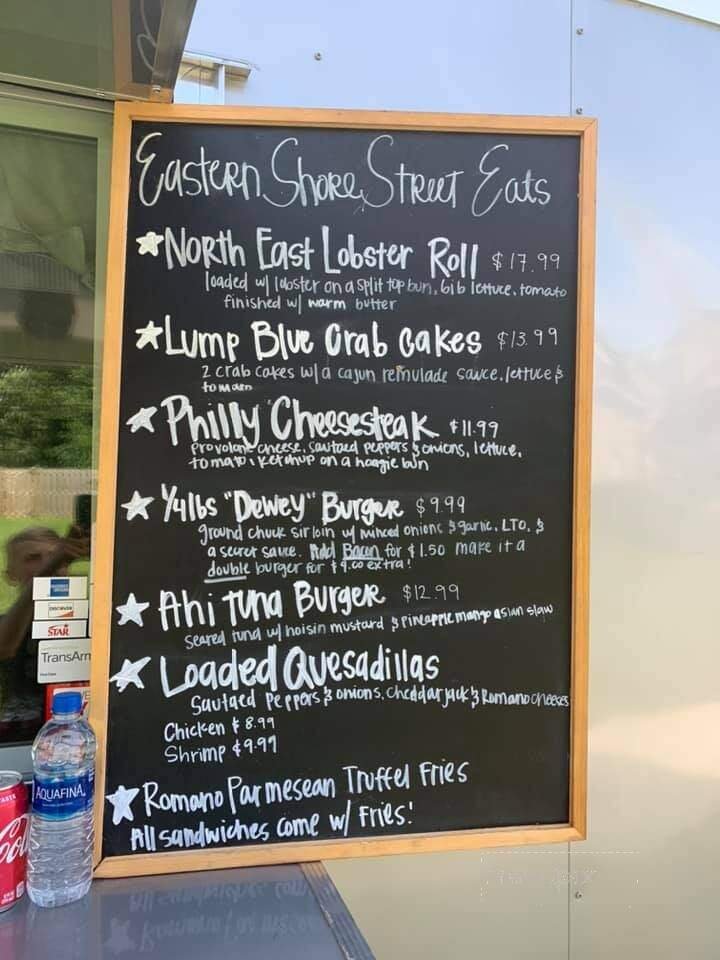 Eastern Shore Street Eats
North East Lobster Roll $17.99
loaded w/ lobster on a split top bun, bib lettuce, tomato
finished w/ warm butter
Lump Blue Crab Cakes $13.99
2 crab cakes w/ a cajun remulade sauce, lettuce &
Philly Cheesesteak $11.99
provolone cheese, sautaed peppers & onions, lettuce,
tomato, ketchup on a hoagie bun
1/4lbs "Dewey" Burger $9.99
ground chuck sirloin w/ minced onions & garlic, LTO, &
a secret sauce. Add Bacon for $1.50 make it a
double burger for $4.00 extra!
Ahi tuna Burger $12.99
seared tuna w/ hoisin mustard & pineapple mango asian slaw
Loaded Quesadillas
Sautaed Peppers & onions, cheddar jack & Romano cheeses
Chicken $8.99
Shrimp $9.99
Romano Parmesean Truffel Fries
All sandwiches come w/ Fries!
DISCOVER
STAR
TransArm
AQUAFINA